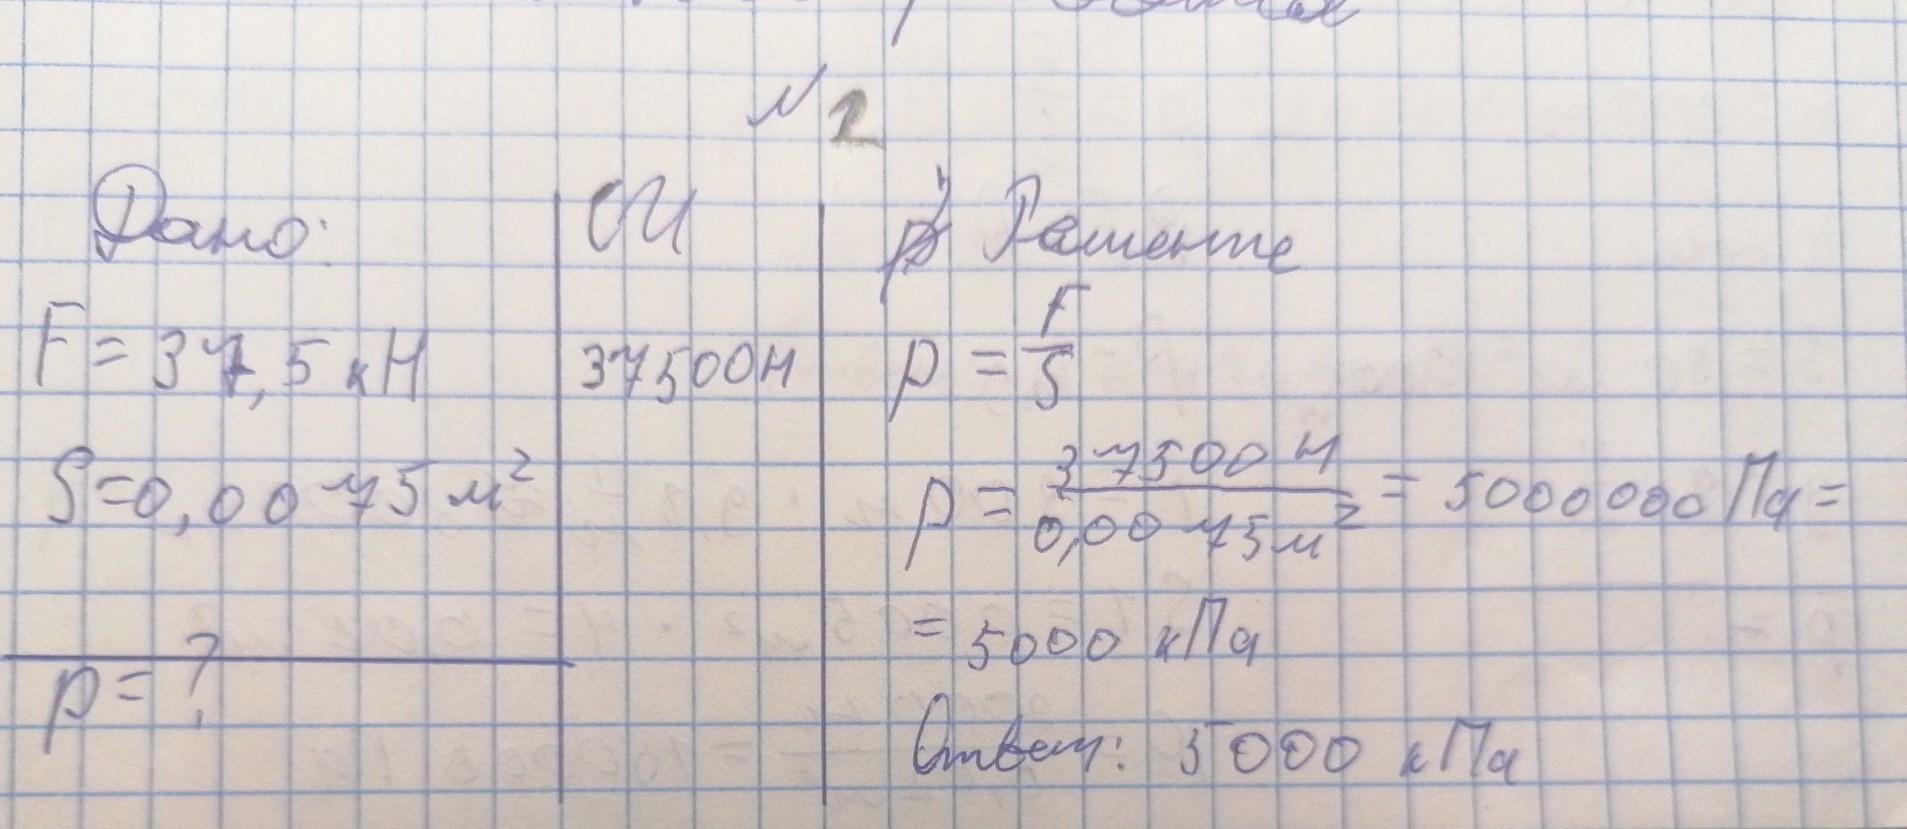 № 2
Дано:
СИ
Решение
F = 37,5 кН
37500Н
p = F/S
S=0,0075 м²
p = 37500 Н / 0,0075 м² = 5000000 Па =
= 5000 кПа
p = ?
Ответ: 5000 кПа